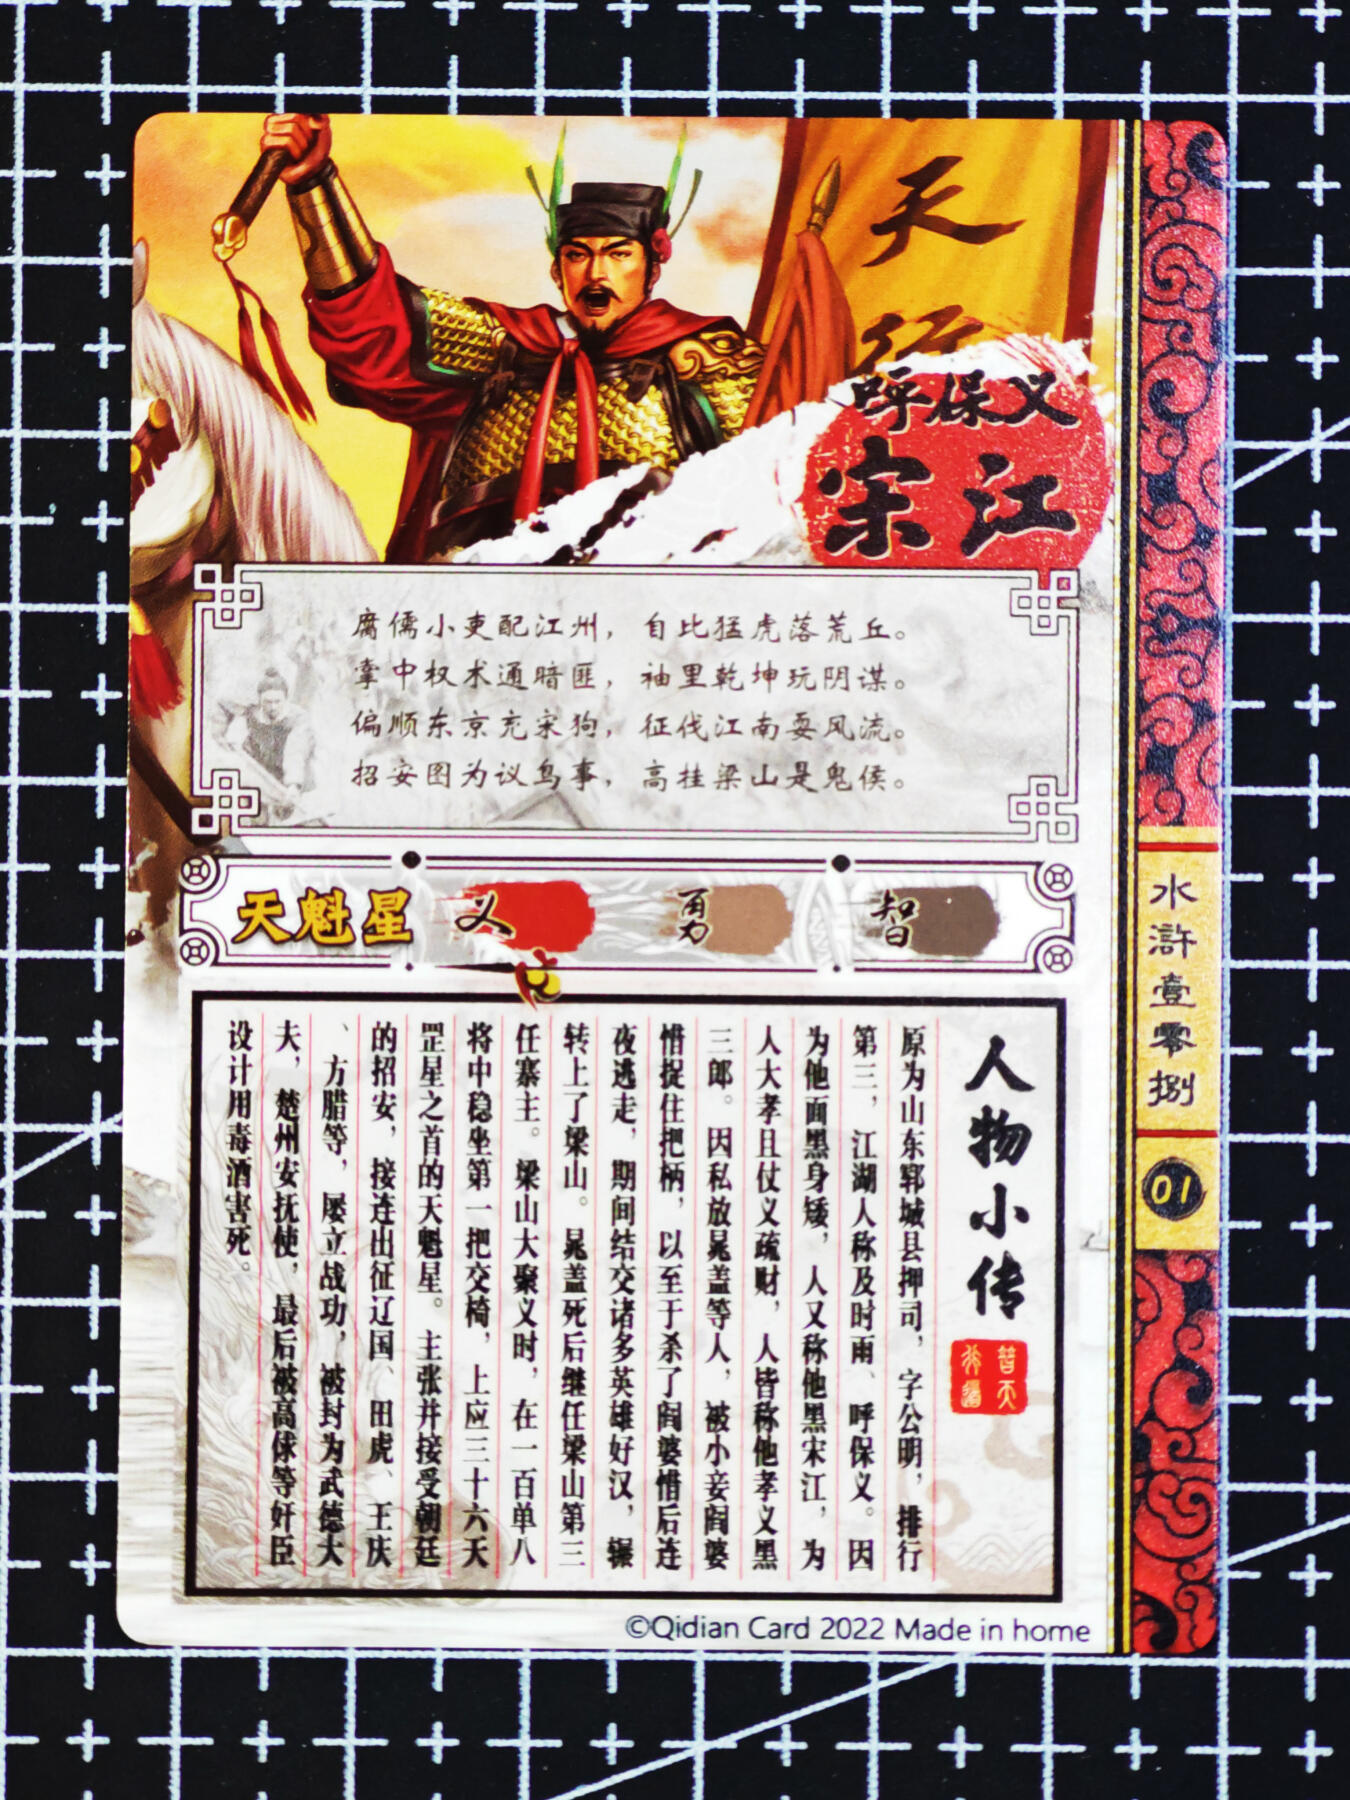 天
行
呼保义
宋江
腐儒小吏配江州，自比猛虎落荒丘。
掌中权术通暗匪，袖里乾坤玩阴谋。
偏顺东京充宋狗，征伐江南耍风流。
招安图为议鸟事，高挂梁山是鬼侯。
天魁星
义
勇
智
人物小传
替天
行道
原为山东郓城县押司，字公明，排行
第三，江湖人称及时雨、呼保义。因
为他面黑身矮，人又称他黑宋江，为
人大孝且仗义疏财，人皆称他孝义黑
三郎。因私放晁盖等人，被小妾阎婆
惜捉住把柄，以至于杀了阎婆惜后连
夜逃走，期间结交诸多英雄好汉，辗
转上了梁山。晁盖死后继任梁山第三
任寨主。梁山大聚义时，在一百单八
将中稳坐第一把交椅，上应三十六天
罡星之首的天魁星。主张并接受朝廷
的招安，接连出征辽国、田虎、王庆
、方腊等，屡立战功，被封为武德大
夫，楚州安抚使，最后被高俅等奸臣
设计用毒酒害死。
水
浒
壹
零
捌
01
©Qidian Card 2022 Made in home